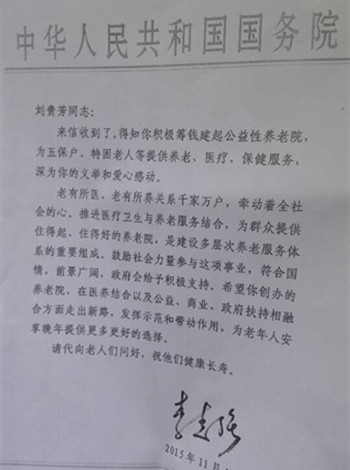 中华人民共和国国务院
刘贵芳同志：
来信收到了，得知你积极筹钱建起公益性养老院，
为五保户、特困老人等提供养老、医疗、保健服务，
深为你的义举和爱心感动。
老有所医、老有所养关系千家万户，牵动着全社
会的心。推进医疗卫生与养老服务结合，为群众提供
住得起、住得好的养老院，是建设多层次养老服务体
系的重要组成。鼓励社会力量参与这项事业，符合国
情，前景广阔，政府会给予积极支持。希望你创办的
养老院，在医养结合以及公益、商业、政府扶持相融
合方面走出新路，发挥示范和带动作用，为老年人安
享晚年提供更多更好的选择。
请代向老人们问好，祝他们健康长寿。
李克强
2015年11月